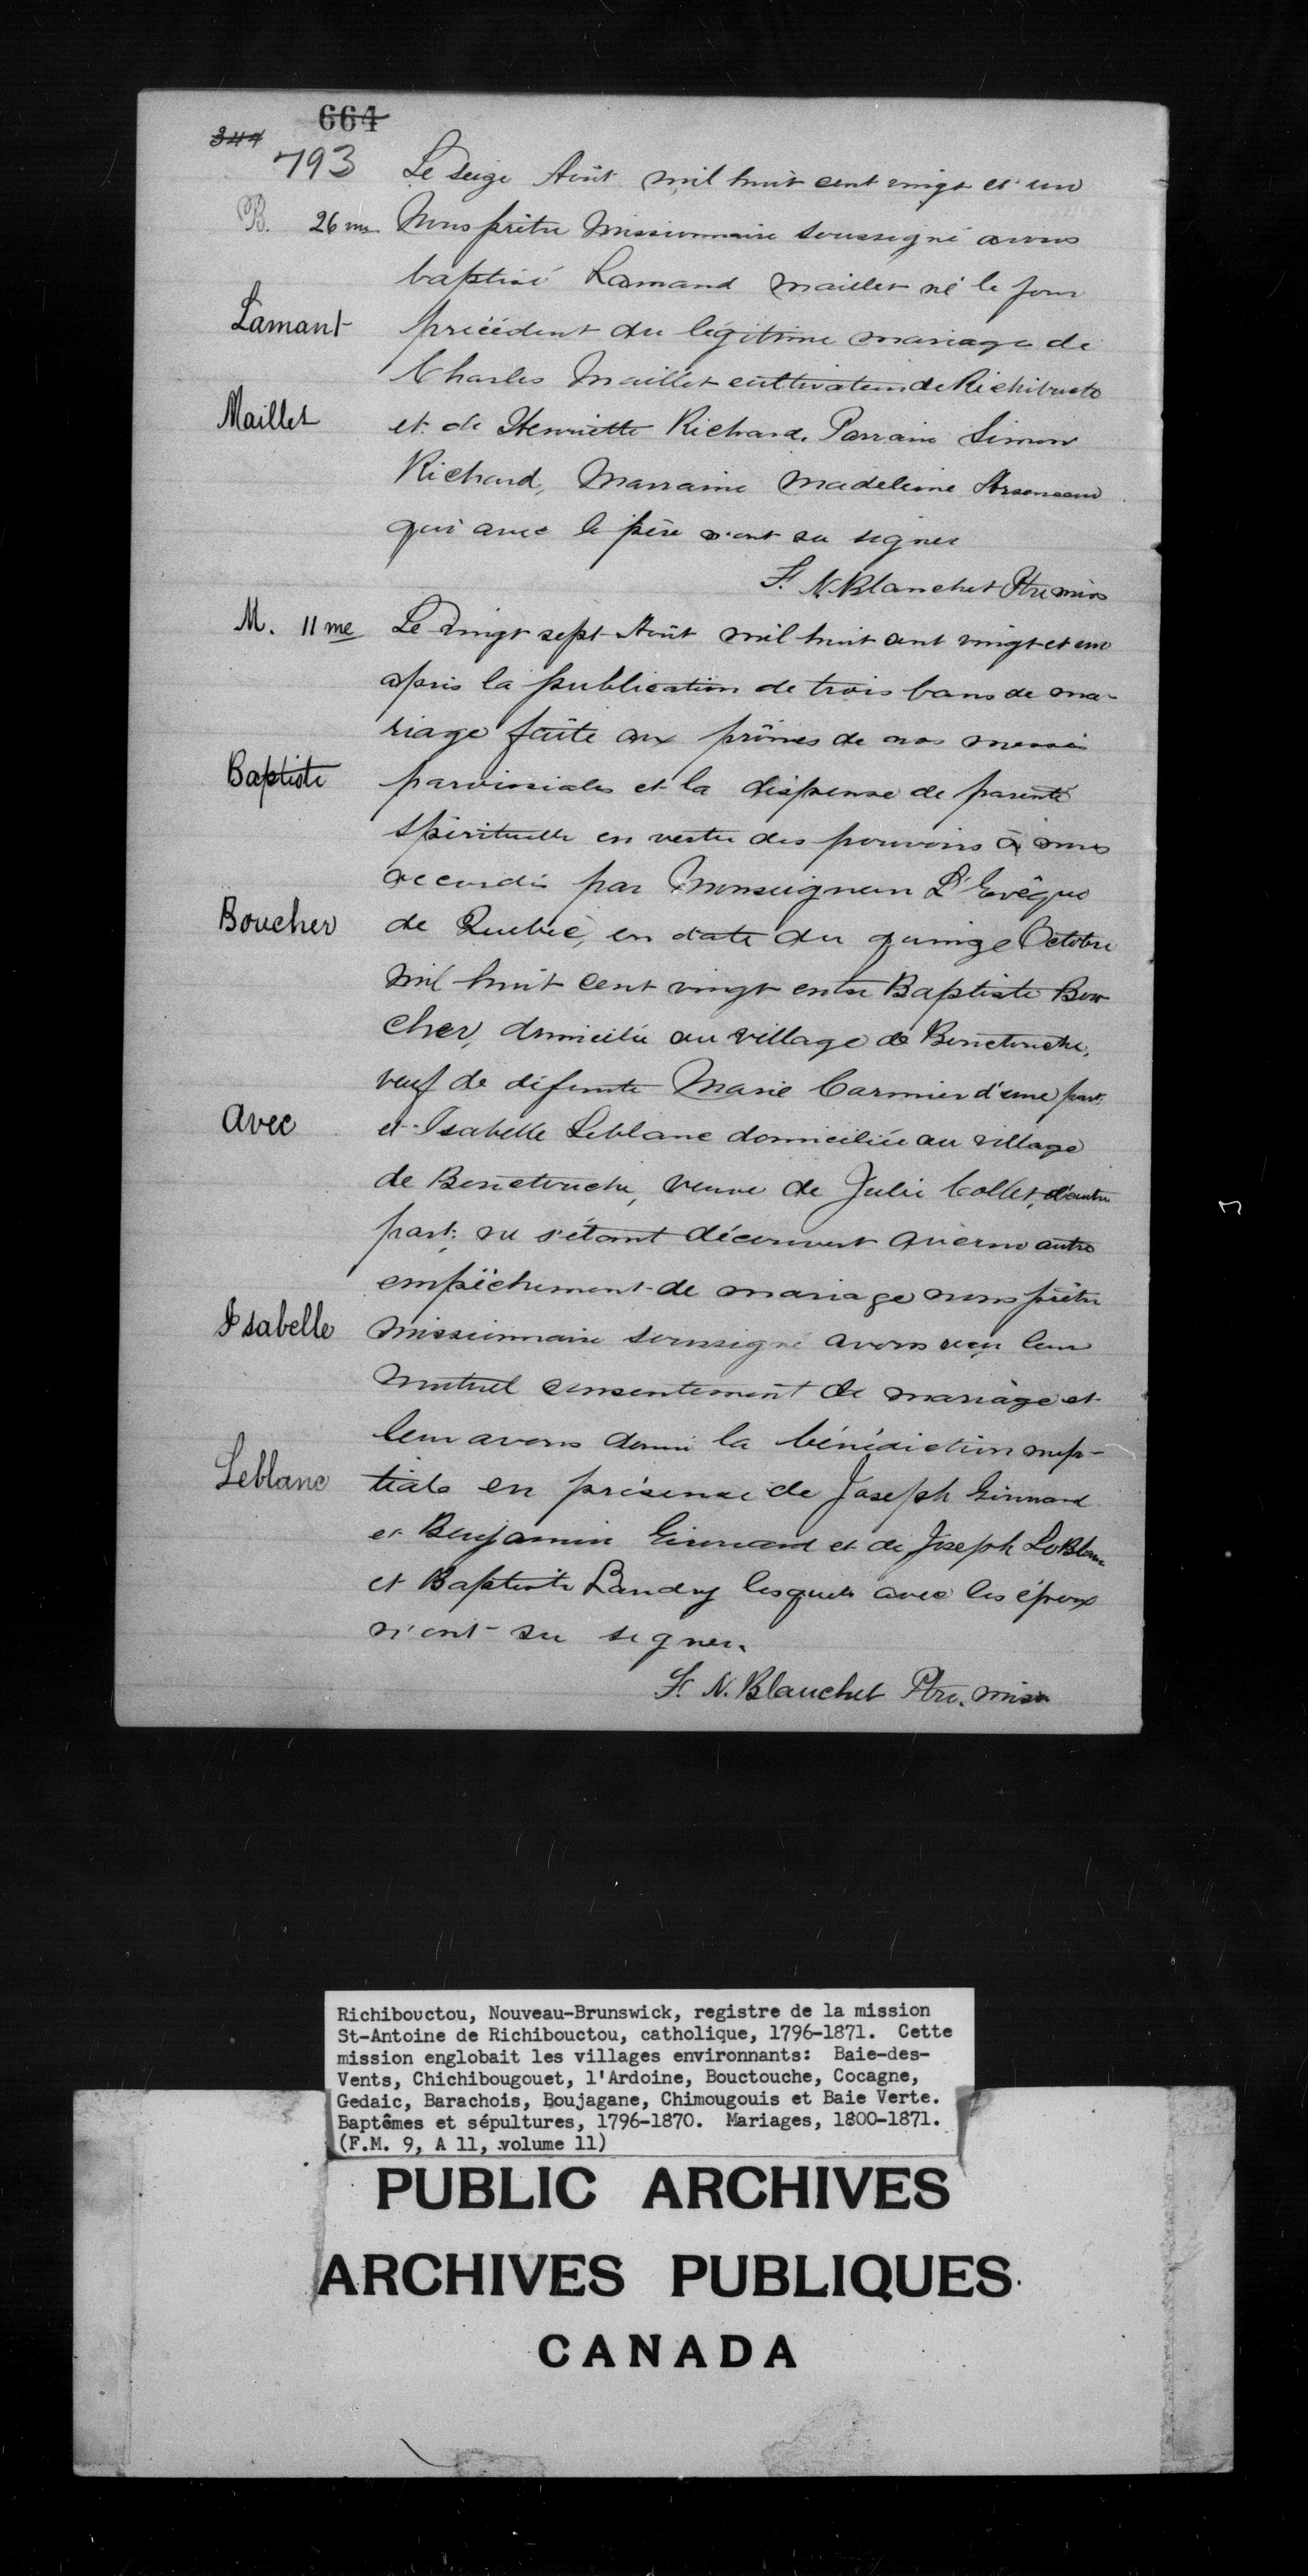 664
344
793
Le seize Août mil huit cent vingt et un
B. 26me Nous prêtre Missionnaire soussigné avons
baptisé Lamand Maillet né le jour
Lamant précédent du légitime mariage de
Charles Maillet cultivateur de Richibucto
Maillet et de Henriette Richard. Parrain Simon
Richard, Marraine Madeleine Arseneau
qui avec le père n'ont su signer
F. N. Blanchet Ptre miss
M. 11me Le vingt sept Août mil huit cent vingt et un
après la publication de trois bans de ma-
riage faite aux prônes de nos messes
Baptiste paroissiales et la dispense de parenté
spirituelle en vertu des pouvoirs à nous
accordés par Monseigneur L'Evêque
Boucher de Quebec, en date du quinze Octobre
mil huit cent vingt entre Baptiste Bou
cher, domicilié au village de Bouctouche,
veuf de défunte Marie Cormier d'une part,
Avec et Isabelle Leblanc domiciliée au village
de Bouctouche, veuve de Julie Collet, d'autre
part; ne s'étant découvert aucun autre
empêchement de mariage nous prêtre
Isabelle missionnaire soussigné avons reçu leur
mutuel consentement de mariage et
leur avons donné la bénédiction nup-
Leblanc tiale en présence de Joseph Girouard
et Benjamin Girouard et de Joseph LeBlanc
et Baptiste Landry lesquels avec les époux
n'ont su signer.
F. N. Blanchet Ptre. miss
Richibouctou, Nouveau-Brunswick, registre de la mission
St-Antoine de Richibouctou, catholique, 1796-1871. Cette
mission englobait les villages environnants: Baie-des-
Vents, Chichibougouet, l'Ardoine, Bouctouche, Cocagne,
Gedaic, Barachois, Boujagane, Chimougouis et Baie Verte.
Baptêmes et sépultures, 1796-1870. Mariages, 1800-1871.
(F.M. 9, A 11, volume 11)
PUBLIC ARCHIVES
ARCHIVES PUBLIQUES
CANADA